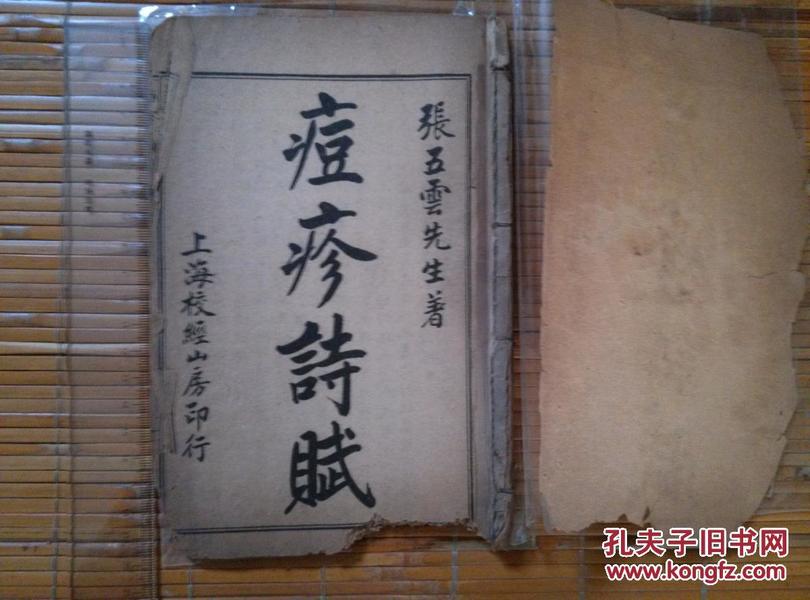 張五雲先生著
痘疹詩賦
上海校經山房印行
孔夫子旧书网
www.kongfz.com